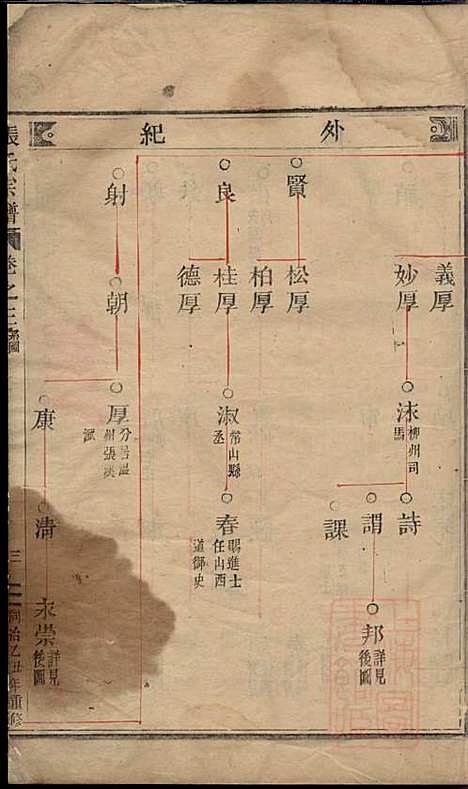 外紀
義厚
妙厚
洣 柳州司馬
詩
謂
課
邦 詳見後圖
賢
松厚
柏厚
良
桂厚
德厚
淑 常山縣丞
春 賜進士任山西道御史
射
朝
厚
康
清
永崇 詳見後圖
張氏宗譜
卷之三
三
同治乙丑年重修